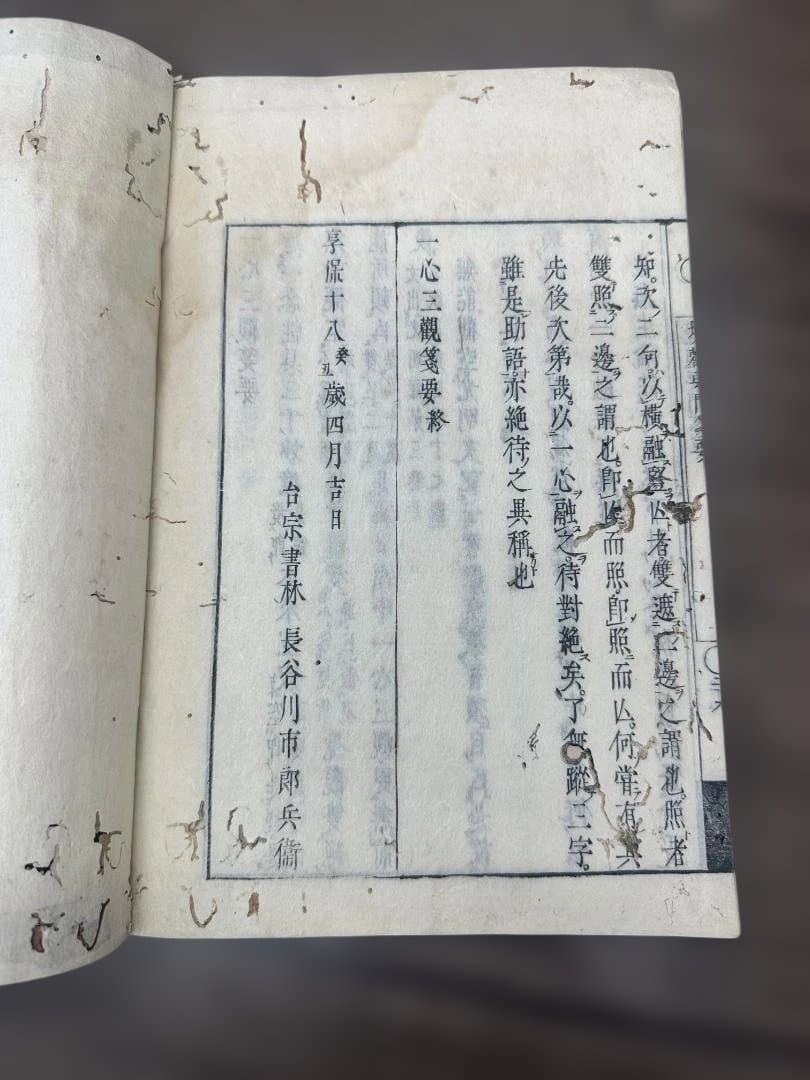 知。次二句。以橫融竪。亡者。雙遮二邊之謂也。照者
雙照二邊之謂也。卽亡而照。卽照而亡。何嘗有其
先後次第哉。以一心融之。待對絶矣。了無蹤三字。
雖是助語。亦絶待之異稱也
一心三觀箋要終
享保十八癸丑歲四月吉日
台宗書林 長谷川市郎兵衞